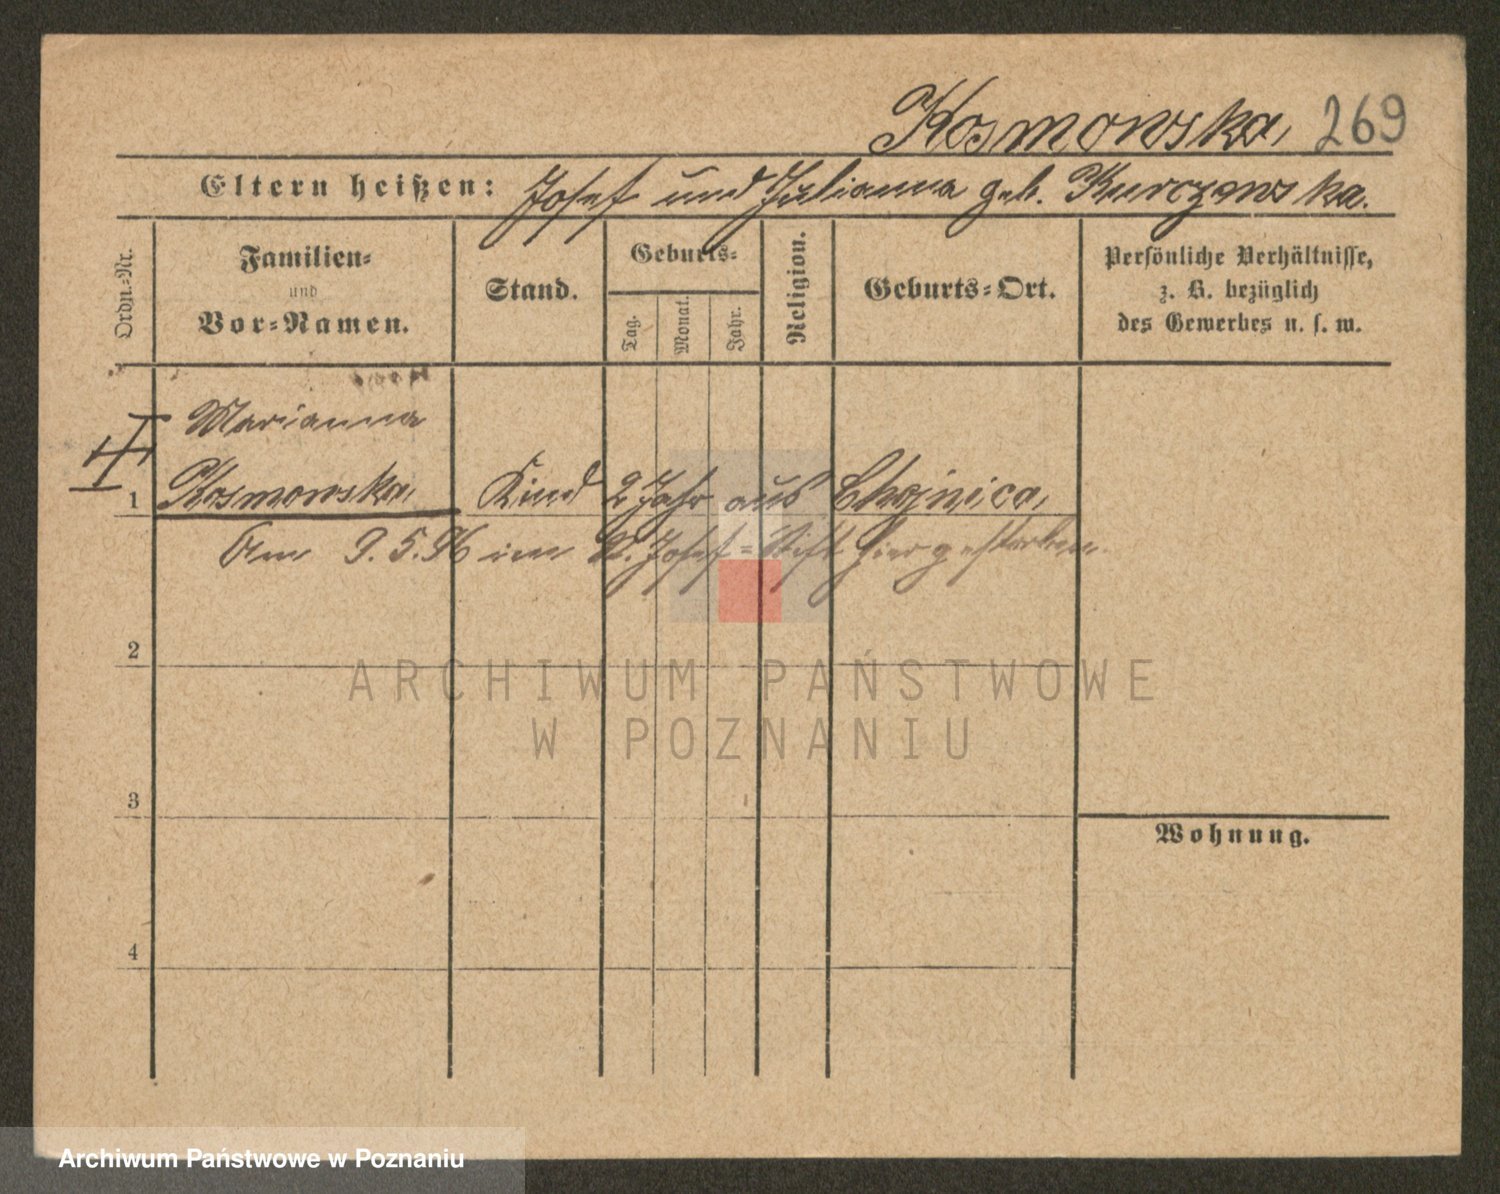 Kosmowska, 269
Eltern heißen: Josef und Julianna geb. Kurczewska.
Ordn.-Nr.
Familien-
und
Vor-Namen.
Stand.
Geburts-
Tag.
Monat.
Jahr.
Religion.
Geburts-Ort.
Persönliche Verhältnisse,
z. B. bezüglich
des Gewerbes u. s. w.
Marianna
1 Kosmowska, Kind 2 Jahr aus Chojnica,
Am 9.5.96 im St. Josef-Stift hier gestorben.
2
ARCHIWUM PAŃSTWOWE
W POZNANIU
3
Wohnung.
4
Archiwum Państwowe w Poznaniu